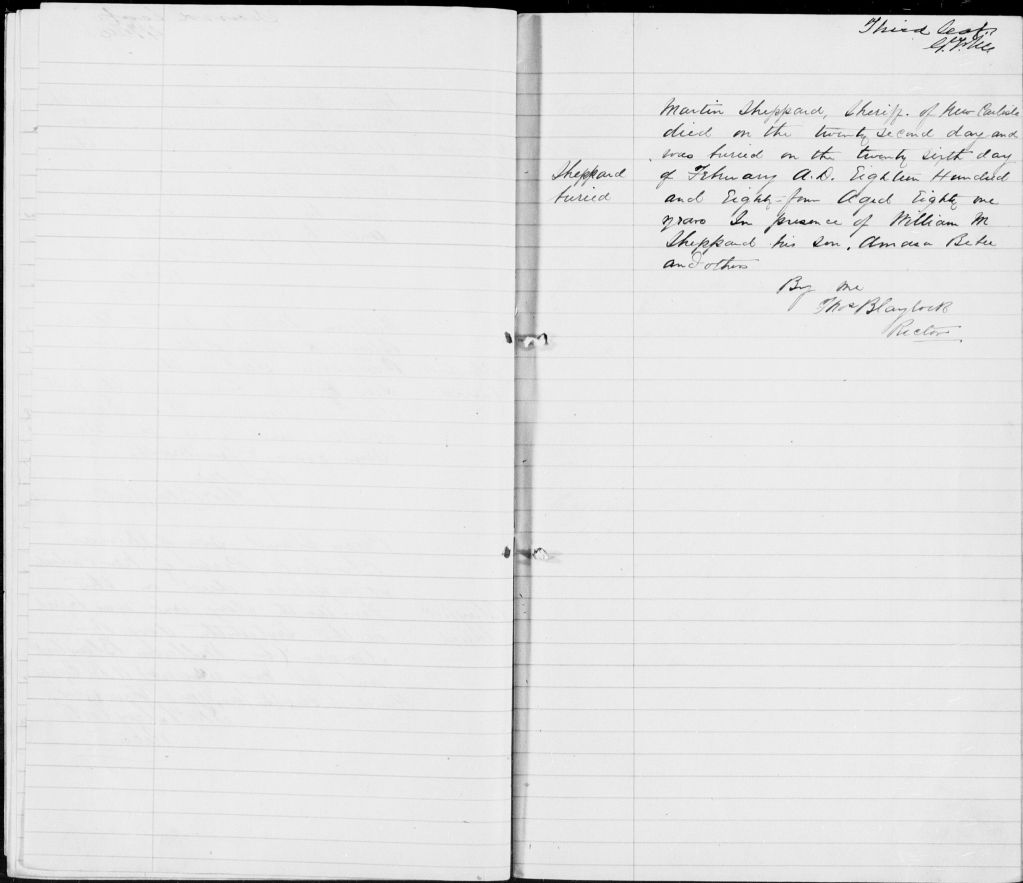 Third leaf
Sheppard
buried
Martin Sheppard, Sheriff. of New Carlisle
died on the twenty second day and
was buried on the twenty sixth day
of February A.D. Eighteen Hundred
and Eighty-four Aged Eighty one
years In presence of William M
Sheppard his son, Amasa Bebee
and others
By me
Thos Blaylock
Rector